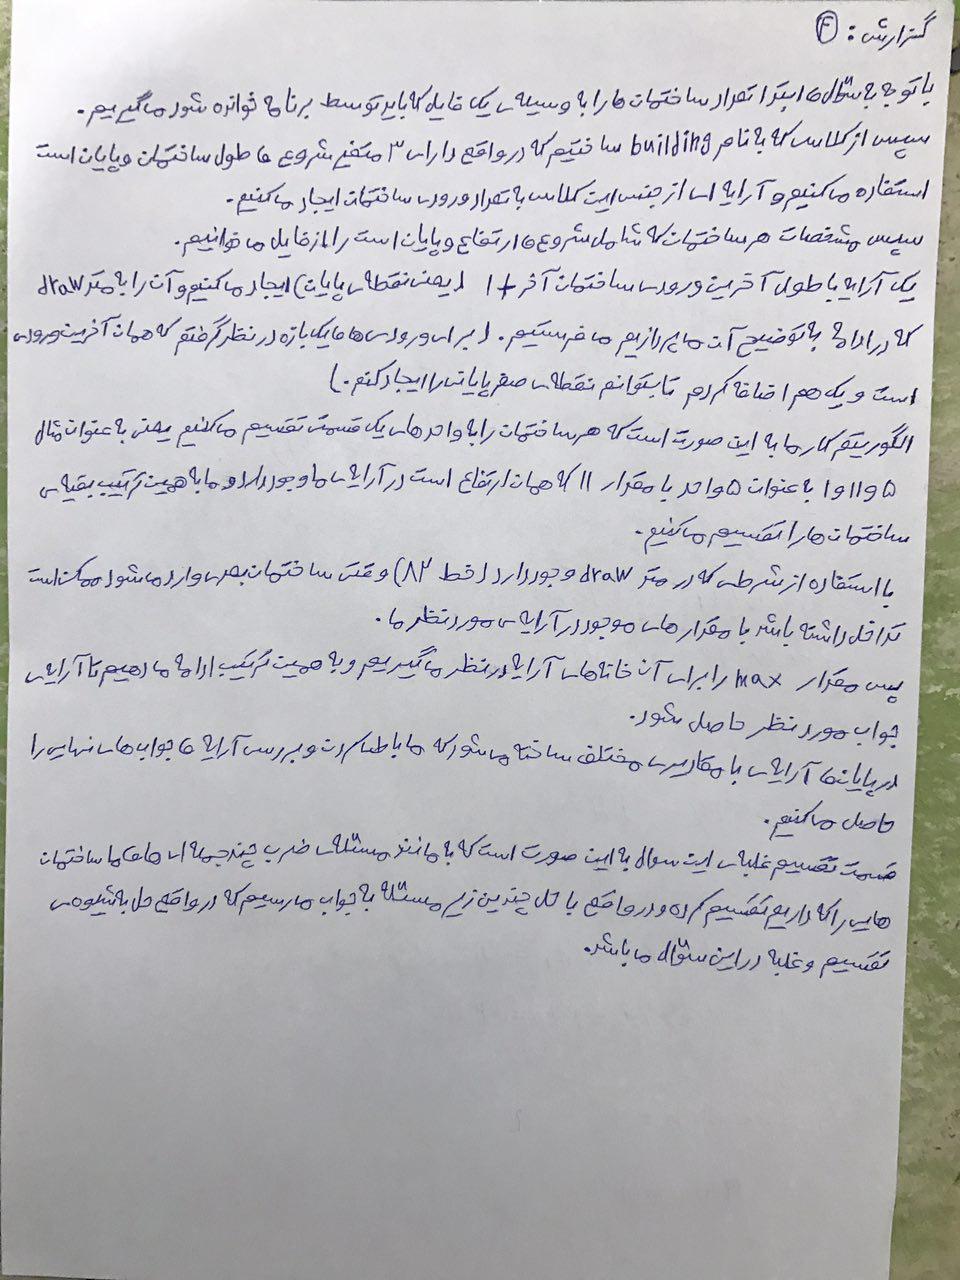 گزارش : ④
با توجه به سؤال ، ابتدا تعداد ساختمان ها را به وسیله ی یک فایل که باید توسط برنامه خوانده شود می گیریم .
سپس از کلاسی که به نام building ساختیم که در واقع دارای ۳ متغیر شروع ، طول ساختمان و پایان است
استفاده می کنیم و آرایه ای از جنس این کلاس به تعداد ورودی ساختمان ایجاد می کنیم .
سپس مشخصات هر ساختمان که شامل شروع ، ارتفاع و پایان است را از فایل می خوانیم .
یک آرایه با طول آخرین ورودی ساختمان آخر + 1 ( یعنی نقطه ی پایان ) ایجاد می کنیم و آن را به متد draw
که در ادامه به توضیح آن می پردازیم می فرستیم . ( برای ورودی ها ، یک بازه در نظر گرفتم که همان آخرین ورودی
است و یک هم اضافه کردم تا بتوانم نقطه ی صفر پایانی را ایجاد کنم . )
الگوریتم کار ما به این صورت است که هر ساختمان را به واحدهای یک قسمتی تقسیم می کنیم یعنی به عنوان مثال
۵ و ۱۱ و ۱ به عنوان ۵ واحد با مقدار ۱۱ که همان ارتفاع است در آرایه ی ما وجود دارد و ما به همین ترتیب بقیه ی
ساختمان ها را تقسیم می کنیم .
با استفاده از شرطی که در متد draw وجود دارد ( خط ۸۲ ) وقتی ساختمان بعدی وارد می شود ممکن است
تداخل داشته باشد با مقدار های موجود در آرایه ی مورد نظر ما .
پس مقدار max را برای آن خانه های آرایه در نظر می گیریم و به همین ترتیب ادامه می دهیم تا آرایه ی
جواب مورد نظر حاصل شود .
در پایان ، آرایه ی با مقادیری مختلف ساخته می شود که ما با طی کردن و بررسی آرایه ، جواب های نهایی را
حاصل می کنیم .
قسمت تقسیم غلبه ی این سوال به این صورت است که به مانند مسئله ی ضرب چند جمله ای ها ، ما ساختمان
هایی را که داریم تقسیم کرده و در واقع با حل چندین زیر مسئله به جواب می رسیم که در واقع حل به شیوه ی
تقسیم و غلبه در این سؤال می باشد .